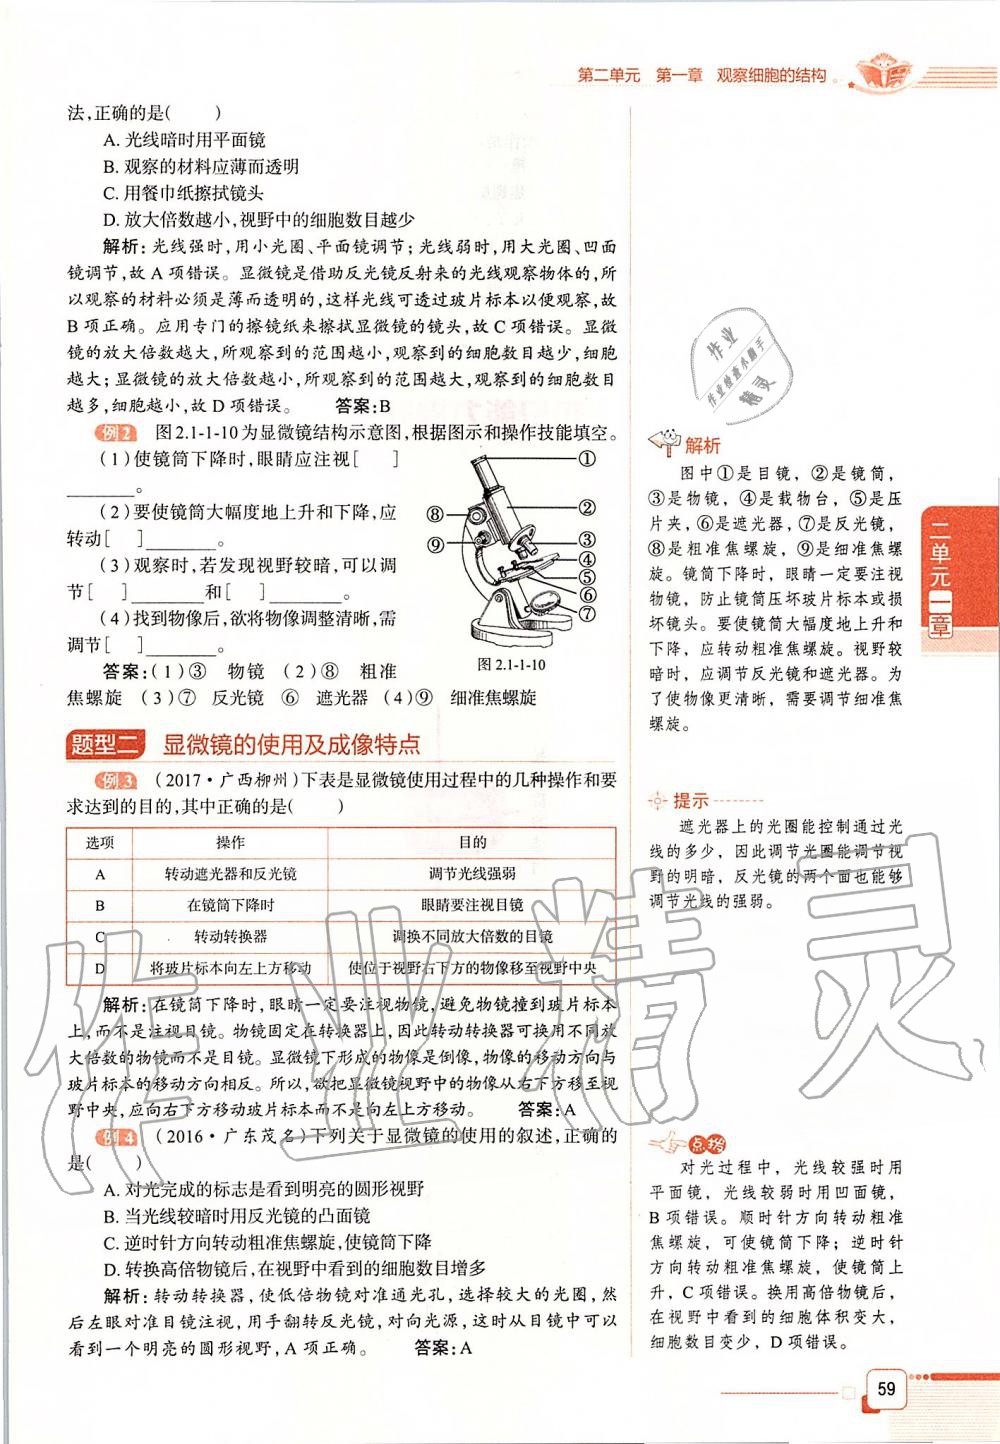 第二单元 第一章 观察细胞的结构
法,正确的是(  )
A. 光线暗时用平面镜
B. 观察的材料应薄而透明
C. 用餐巾纸擦拭镜头
D. 放大倍数越小,视野中的细胞数目越少
解析:光线强时,用小光圈、平面镜调节;光线弱时,用大光圈、凹面
镜调节,故 A 项错误。显微镜是借助反光镜反射来的光线观察物体的,所
以观察的材料必须是薄而透明的,这样光线可透过玻片标本以便观察,故
B 项正确。应用专门的擦镜纸来擦拭显微镜的镜头,故 C 项错误。显微
镜的放大倍数越大,所观察到的范围越小,观察到的细胞数目越少,细胞
越大;显微镜的放大倍数越小,所观察到的范围越大,观察到的细胞数目
越多,细胞越小,故 D 项错误。 答案:B
例2 图2.1-1-10为显微镜结构示意图,根据图示和操作技能填空。
(1)使镜筒下降时,眼睛应注视[  ]
________。
(2)要使镜筒大幅度地上升和下降,应
转动[  ]________。
(3)观察时,若发现视野较暗,可以调
节[  ]________和[  ]________。
(4)找到物像后,欲将物像调整清晰,需
调节[  ]________。
①
②
③
④
⑤
⑥
⑦
⑧
⑨
图 2.1-1-10
答案:(1)③ 物镜 (2)⑧ 粗准
焦螺旋 (3)⑦ 反光镜 ⑥ 遮光器 (4)⑨ 细准焦螺旋
题型二 显微镜的使用及成像特点
例3 (2017·广西柳州)下表是显微镜使用过程中的几种操作和要
求达到的目的,其中正确的是(  )
选项 操作 目的
A 转动遮光器和反光镜 调节光线强弱
B 在镜筒下降时 眼睛要注视目镜
C 转动转换器 调换不同放大倍数的目镜
D 将玻片标本向左上方移动 使位于视野右下方的物像移至视野中央
解析:在镜筒下降时,眼睛一定要注视物镜,避免物镜撞到玻片标本
上,而不是注视目镜。物镜固定在转换器上,因此转动转换器可换用不同放
大倍数的物镜而不是目镜。显微镜下形成的物像是倒像,物像的移动方向与
玻片标本的移动方向相反。所以,欲把显微镜视野中的物像从右下方移至视
野中央,应向右下方移动玻片标本而不是向左上方移动。 答案:A
例4 (2016·广东茂名)下列关于显微镜的使用的叙述,正确的
是(  )
A. 对光完成的标志是看到明亮的圆形视野
B. 当光线较暗时用反光镜的凸面镜
C. 逆时针方向转动粗准焦螺旋,使镜筒下降
D. 转换高倍物镜后,在视野中看到的细胞数目增多
解析:转动转换器,使低倍物镜对准通光孔,选择较大的光圈,然
后左眼对准目镜注视,用手翻转反光镜,对向光源,这时从目镜中可以
看到一个明亮的圆形视野,A 项正确。 答案:A
作业
作业检查小帮手
精灵
解析
图中①是目镜,②是镜筒,
③是物镜,④是载物台,⑤是压
片夹,⑥是遮光器,⑦是反光镜,
⑧是粗准焦螺旋,⑨是细准焦螺
旋。镜筒下降时,眼睛一定要注视
物镜,防止镜筒压坏玻片标本或损
坏镜头。要使镜筒大幅度地上升和
下降,应转动粗准焦螺旋。视野较
暗时,应调节反光镜和遮光器。为
了使物像更清晰,需要调节细准焦
螺旋。
提示
遮光器上的光圈能控制通过光
线的多少,因此调节光圈能调节视
野的明暗,反光镜的两个面也能够
调节光线的强弱。
点拨
对光过程中,光线较强时用
平面镜,光线较弱时用凹面镜,
B 项错误。顺时针方向转动粗准
焦螺旋,可使镜筒下降;逆时针
方向转动粗准焦螺旋,使镜筒上
升,C 项错误。换用高倍物镜后,
在视野中看到的细胞体积变大,
细胞数目变少,D 项错误。
二单元一章
作业精灵
59